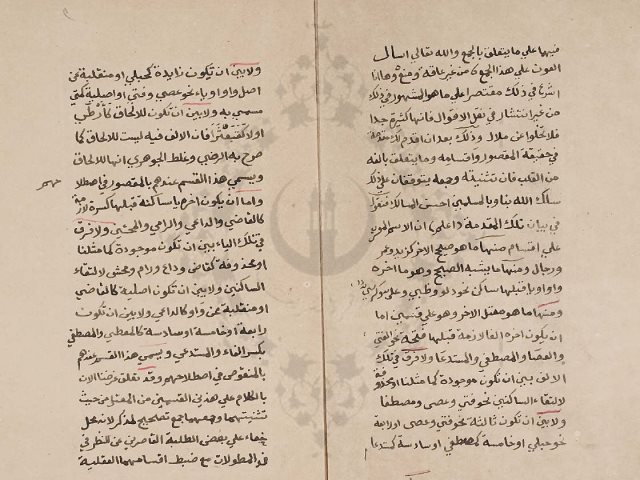 فيها علي ما يتعلق بالجمع والله تعالي اسال
العون علي هذا الجمع من غير عاقة ومنع وهاانا
اشرع في ذلك مقتصرا علي ما هو المشهور في ذلك
من غير انتشار في نقل الاقوال فانها كثيرة جدا
فلا تخلوا عن ملال وذلك بعد ان اقدم لك مقدمة
في حقيقة المقصور واقسامه وما يتعلق بالفه
من القلب فان تثنيته وجمعه يتوقفان علي ذلك
سلك الله بنا وبالمسلمين احسن المسالك
في بيان تلك المقدمة اعلم ان الاسم المعرب
علي اقسام منها ما هو صحيح الاخر كزيد وعمر
ورجال ومنها ما يشبه الصحيح وهو ما اخره
واو او يا قبلها ساكن نحو دلو وظبي وعلي
ومنها ما هو معتل الاخر وهو علي قسمين اما
ان يكون اخره الفا لازمة قبلها فتحة نحو الفتي
والعصا والمصطفي والمستدعا ولا فرق في تلك
الالف بين ان تكون موجودة كما مثلنا او محذوفة
لالتقاء الساكنين نحو فتي وعصي ومصطفا
ولا بين ان تكون ثالثة نحو فتي وعصي او رابعة
نحو حبلي او خامسة كمصطفي او سادسة كمستدعا
ولا بين ان تكون زايدة كحبلي او منقلبة عن
اصل واو او ياء نحو عصي وفتي او اصلية كمتي
مسمي به ولا بين ان تكون للالحاق كارطي
اولا كقبعثرا فان الالف فيه ليست للالحاق كما
صرح به الرضي وغلط الجوهري انها للالحاق
ويسمي هذا القسم عندهم بالمقصور في اصطلا
حهم
واما ان يكون اخره يا ساكنة قبلها كسرة لازمة
كالقاضي والداعي والرامي والمحشي ولا فرق
في تلك الياء بين ان تكون موجودة كما مثلنا
او محذوفة كقاض وداع ورام ومحش لالتقاء
الساكنين ولا بين ان تكون اصلية كالقاضي
او منقلبة عن واو كالداعي ولا بين ان تكون
رابعة او خامسة او سادسة كالمعطي والمصطفي
بكسر الفاء والمستدعي ويسمي هذا القسم عندهم
بالمنقوص في اصطلاحهم وقد تعلق غرضنا الان
بالكلام علي هذين القسمين من المعتل من حيث
تثنيتهما وجمعهما جمع تصحيح لمذكر لانه محل
خفاء علي بعض الطلبة القاصرين عن النظر في
المطولات مع ضبط اقسامهما العقلية